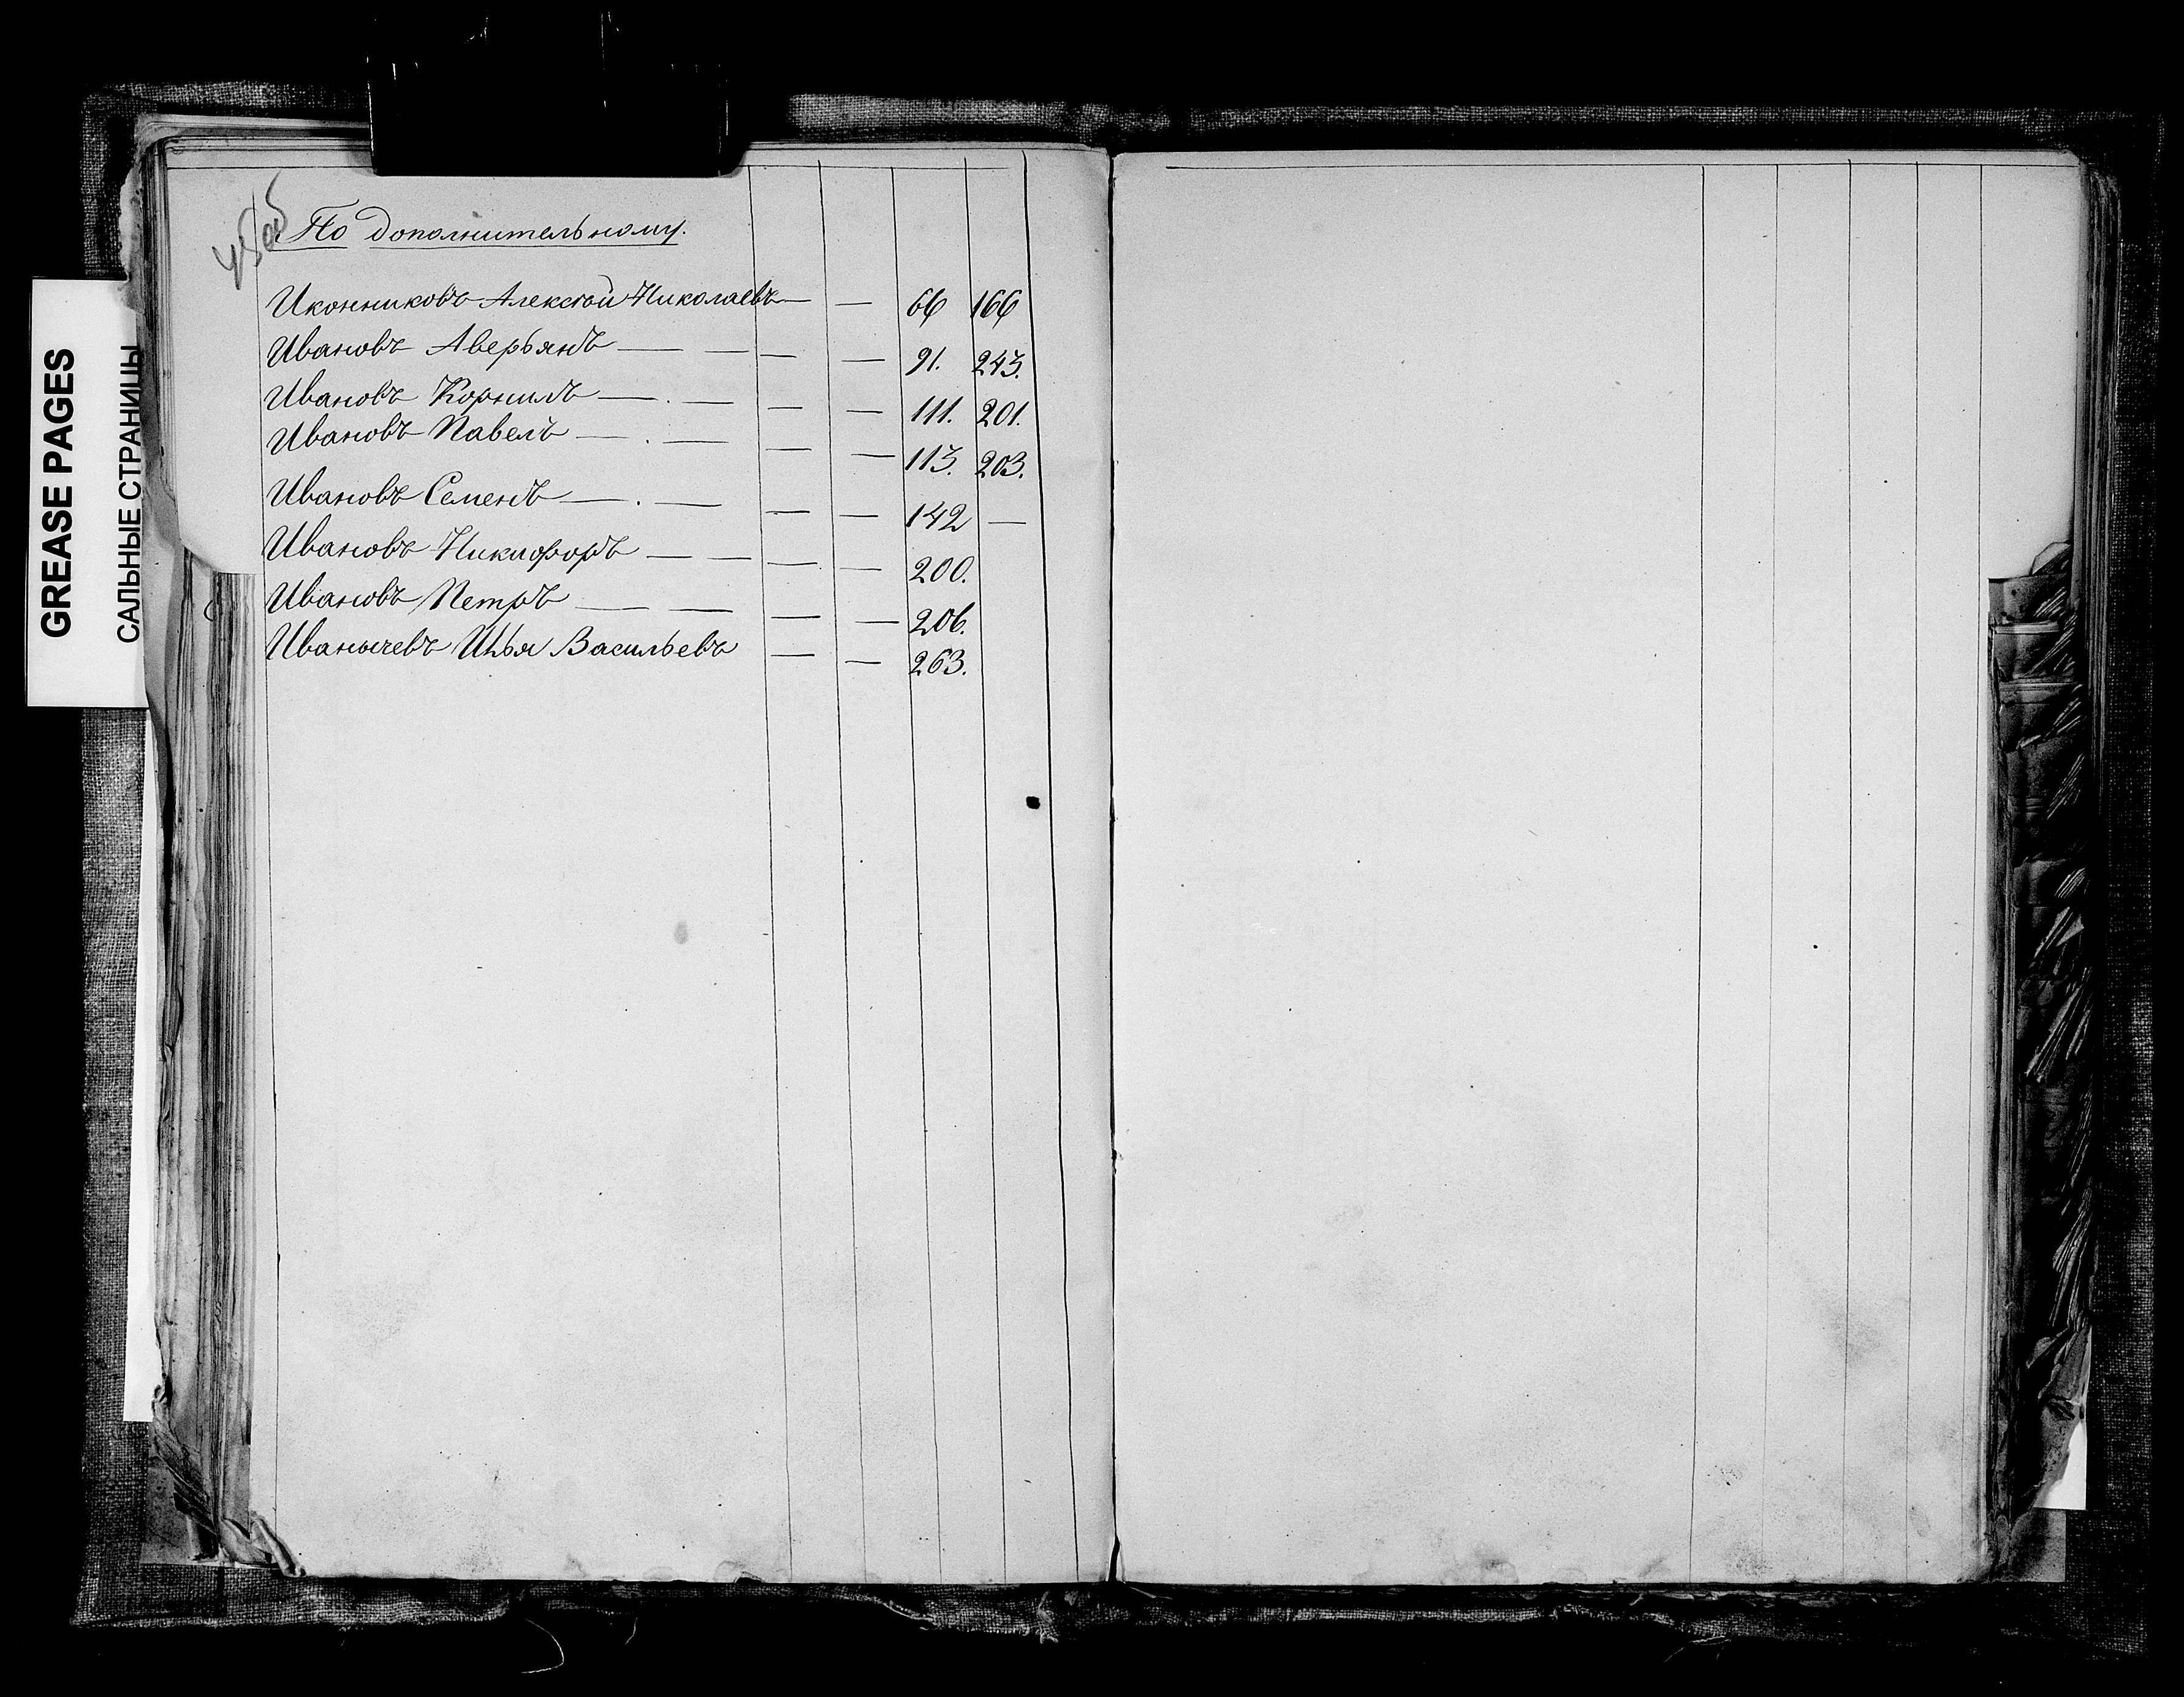 GREASE PAGES
САЛЬНЫЕ СТРАНИЦЫ
По дополнительному.
Иконниковъ Алексѣй Николаевъ — — 66 166
Ивановъ Аверьянъ — — — — 91. 243.
Ивановъ Корнилъ — . — — — 111. 201.
Ивановъ Павелъ — . — — — 113. 203.
Ивановъ Семенъ — . — — — 142 —
Ивановъ Никифоръ — — — — 200.
Ивановъ Петръ — — — — 206.
Иванычевъ Илья Васильевъ — — 263.